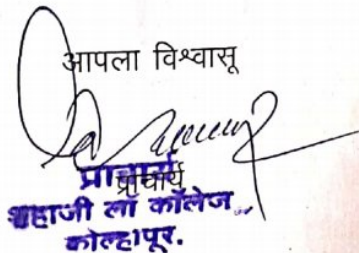 आपला विश्वासू
प्राचार्य
प्राचार्य
शहाजी लॉ कॉलेज
कोल्हापूर.